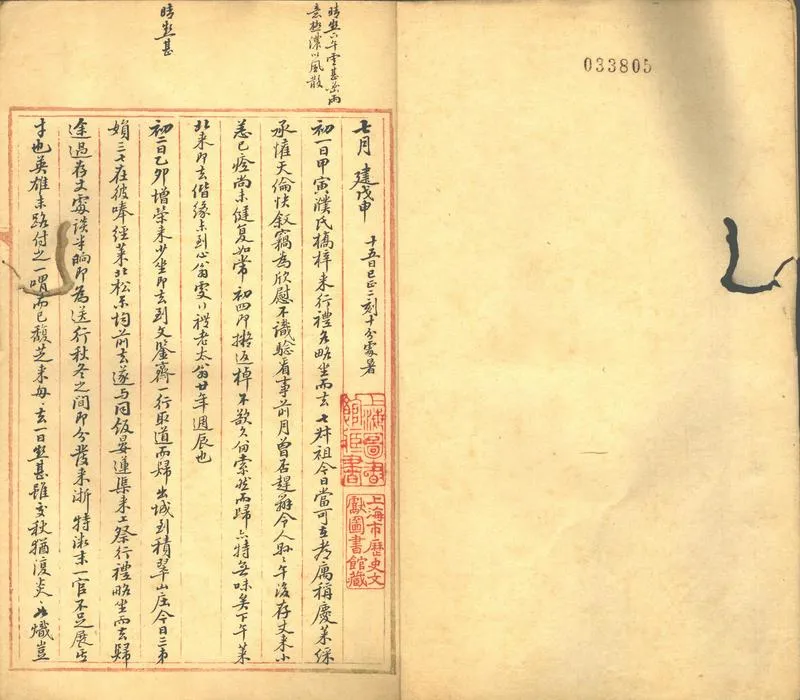 033805
晴熱六午雲甚密雨
意極濃以風散
晴熱甚
七月 建戊申 十五日巳正二刻十分處暑
初一日甲寅濮氏橋梓來行禮各略坐而去七叔祖今日當可在考廬稱慶萊綵
承懽天倫快叙竊為欣慰不識驗看事前月曾否趕辦令人懸懸午後存丈來小
恙已痊尚未健复如常初四即擬返棹不欲久留索然而歸亦特無味矣下午萊
北來即去偕緣未到心翁雯川禮老太翁廿年週辰也
初二日乙卯增榮來少坐即去到文鑒齋一行取道而歸出城到積翠山莊今日三弟
婦三七在彼唪經萊北松
均前去遂与同飯晏蓮渠來上祭行禮略坐而去歸
途過存丈處談半晌即為送行秋冬之間即分發來浙特微末一官不足展其
才也英雄末路付之一喟而已馥芝來每去一日熱甚雖交秋猶復炎炎火熾豈
上海圖書館藏書
上海市歷史文獻圖書館藏